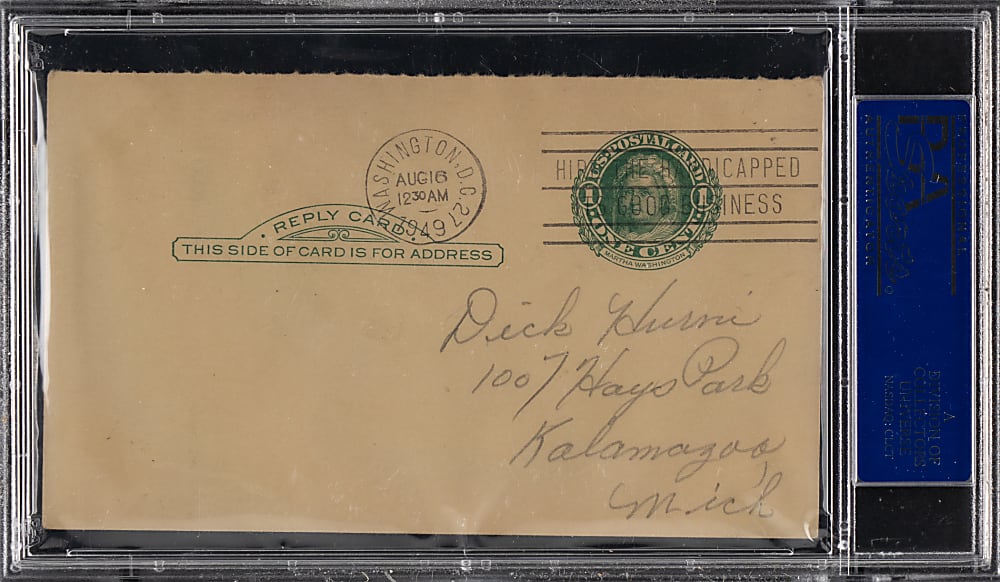 WASHINGTON, D.C. 27
AUG 16
12 30 AM
1949
HIRE THE HANDICAPPED
GOOD BUSINESS
U.S. POSTAL CARD
1 1
ONE CENT
MARTHA WASHINGTON
REPLY CARD
THIS SIDE OF CARD IS FOR ADDRESS
Dick Hurni
1007 Hays Park
Kalamazoo,
Mich
PSA
A
DIVISION OF
COLLECTORS
UNIVERSE
NASDAQ: CLCT